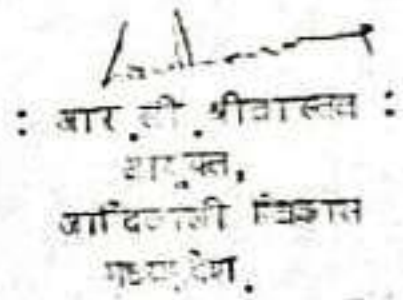 : आर.सी.श्रीवास्तव :
आयुक्त,
आदिवासी विकास
मध्य प्रदेश.